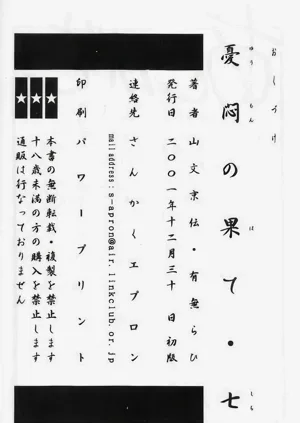 おしづけ
憂悶の果て・七
ゆうもん は しち
著者 山文京伝・有無らひ
発行日 二〇〇一年十二月三十日初版
連絡先 さんかくエプロン
mail address:s-apron@air.linkclub.or.jp
印刷 パワープリント
本書の無断転載・複製を禁止します
十八歳未満の方の購入を禁止します
通販は行なっておりません